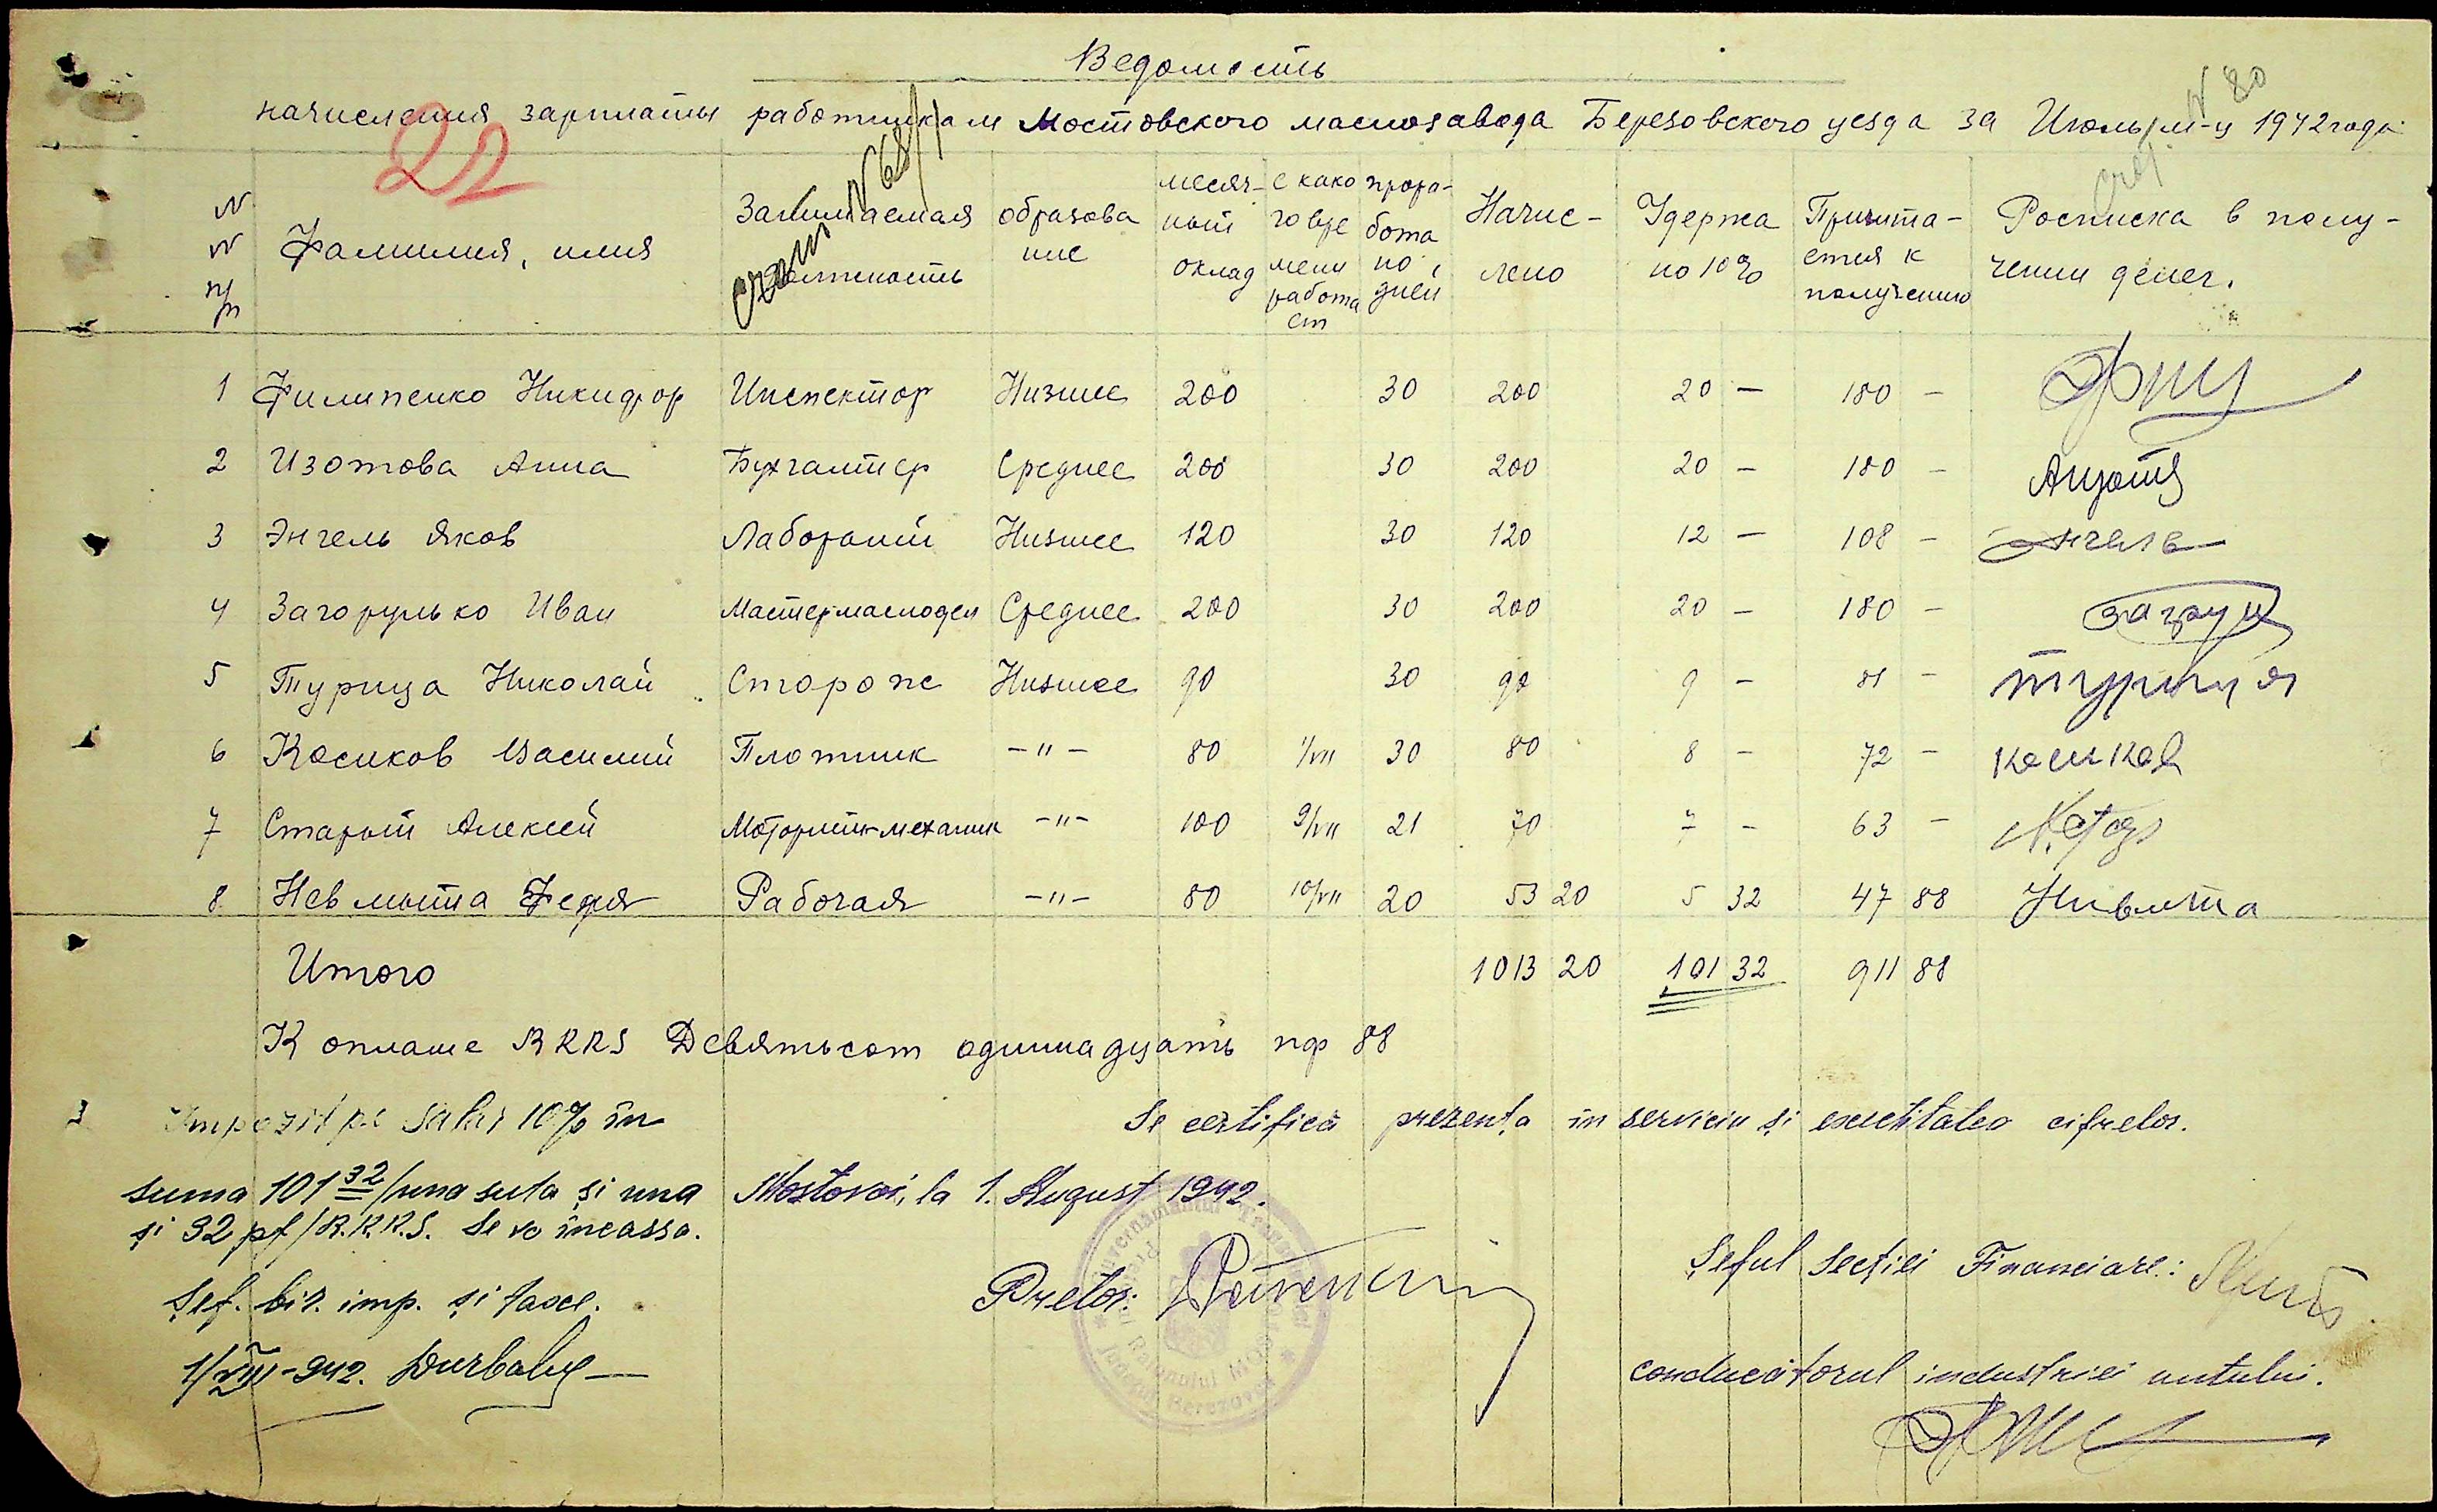 Ведомость
начисления зарплаты работникам Мостовского маслозавода Березовского уезда за Июль м-ц 1942 года
22
N 68
N 80
N N п/п | Фамилия, имя | Занимаемая должность | образование | месячный оклад | с какого времени работает | прорабо тано дней | Начис- лено | Удержа но 10% | Причита- ется к получению | Росписка в полу- чении денег.
1 Филипенко Никифор Инспектор Низшее 200 30 200 20 — 180 —
2 Изотова Анна Бухгалтер Среднее 200 30 200 20 — 180 —
3 Энгель Яков Лаборант Низшее 120 30 120 12 — 108 — Энгель
4 Загорулько Иван Мастер маслодел Среднее 200 30 200 20 — 180 — Загору
5 Турица Николай Сторож Низшее 90 30 90 9 — 81 — Турица
6 Косиков Василий Плотник —"— 80 1/VII 30 80 8 — 72 — Косиков
7 Старый Алексей Моторист-механик —"— 100 9/VII 21 70 7 — 63 —
8 Невмыта Федря Рабочая —"— 80 10/VII 20 53 20 5 32 47 88 Нивмита
Итого 1013 20 101 32 911 88
К оплате RKKS Девятьсот одиннадцать пф 88
Impozit pe salar 10% în
suma 101 32 /una suta și una
și 32 pf/ R.K.K.S. Se va încassa.
Șef. bir. imp. și taxe.
1/VIII-942.
Se certifică prezența în serviciu și exactitatea cifrelor.
Mostovoi, la 1. August 1942.
Pretor:
Guvernământul Transnistriei
Județul Berezovca
Șeful Secției Financiare:
conducătorul industriei untului.